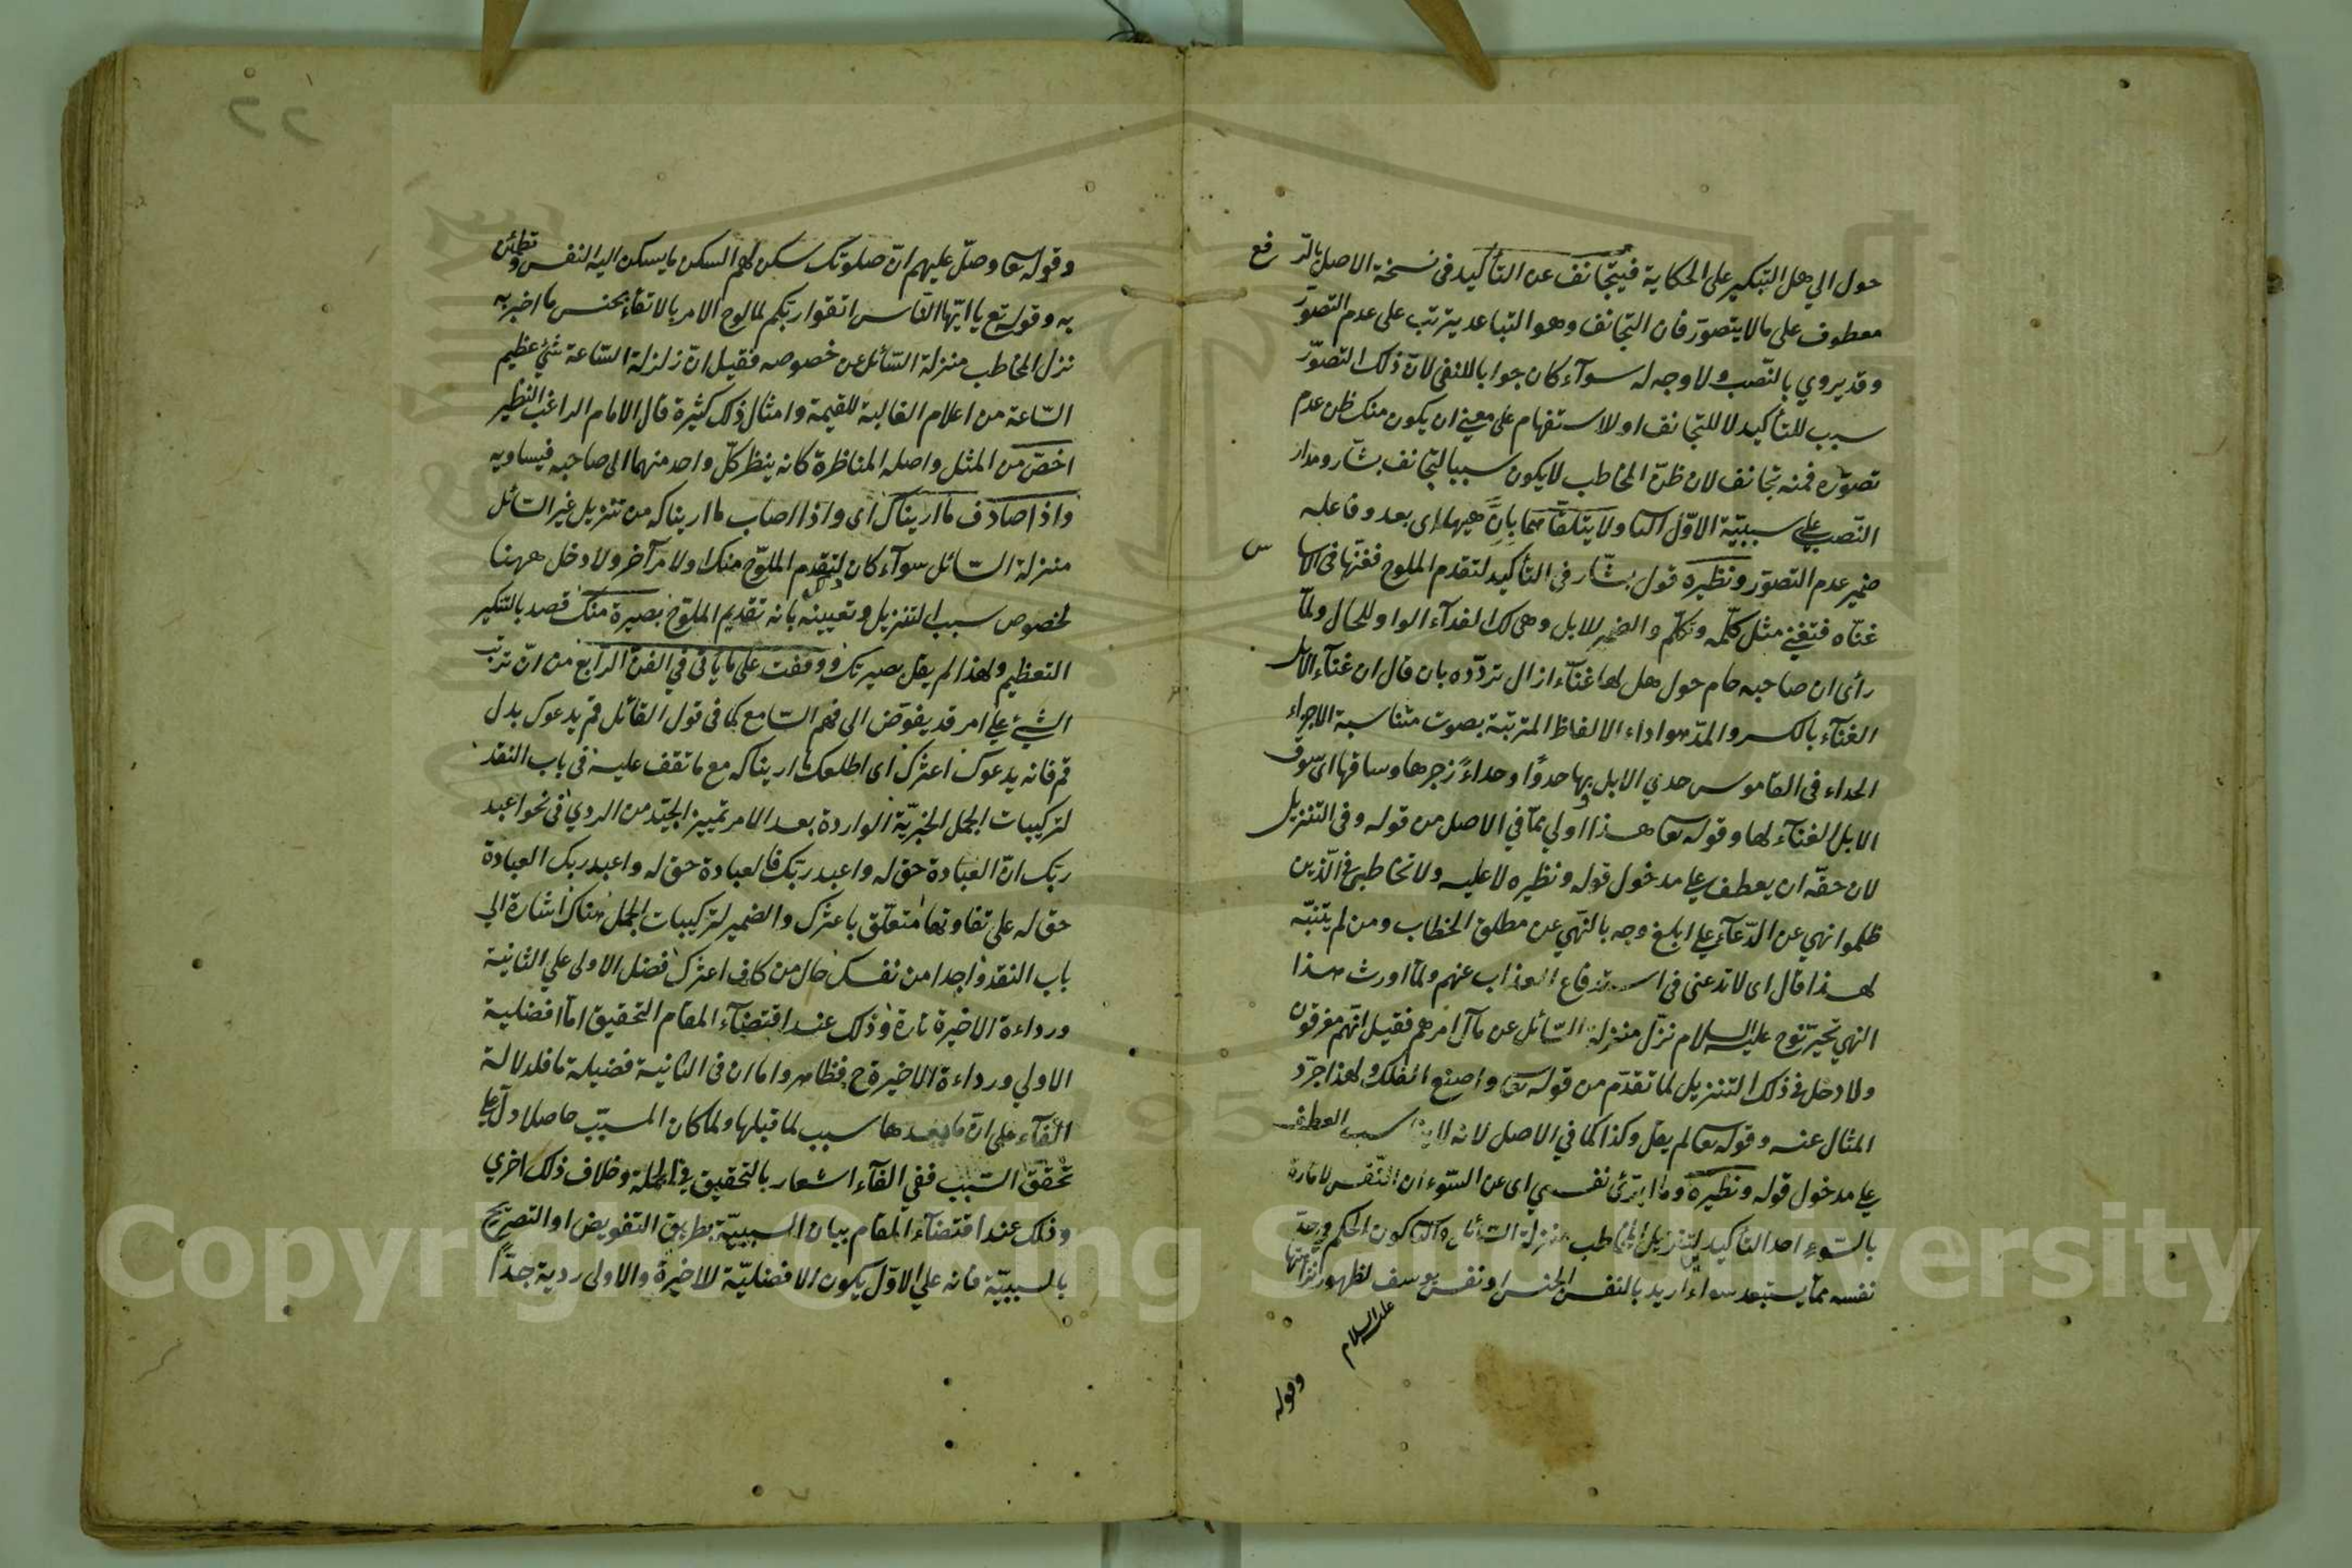 حول الي هل التنكير على الحكاية فيتجانف عن التأكيد في نسخة الاصل بالرفع
معطوف على مالا يتصوّر فان التجانف وهو التباعد يترتب على عدم التصوّر
وقد يروي بالنّصب ولا وجه له سوآء كان جوابا للنفي لانّ ذلك التصوّر
سبب للتأكيد لا للتجانف او للاستفهام على معنى ان يكون منك ظن عدم
تصوّره فمنه تجانف لان ظنّ المخاطب لا يكون سببا لتجانف بشار ومدار
النّصب على سببيّة الاوّل الثا ولا يتلقا هما بانّ هيهات اى بعد وفاعله
ضمير عدم التصوّر ونظيره قول بشّار في التأكيد لتقدم الملوح فغنّها في الاساس
غنّاه فتغنى مثل كلّمه وتكلّم والضمير للابل وهي لك الفدآء الواو للحال ولمّا
رأى ان صاحبه حام حول هل لها غنآء ازال تردّده بان قال ان غنآء الابل
الغنآء بالكسر والمدّ هو اداء الالفاظ المترتبة بصوت متناسبة الاجزاء
الحداء في القاموس حدي الابل وبها حدوًا وحداءً زجرها وساقها اى سوق
الابل الغنآء لها وقوله تعا هذا اولي ممّا في الاصل من قوله وفي التنزيل
لان حقّه ان يعطف على مدخول قوله ونظيره لا عليه ولا تخاطبني في الّذين
ظلموا نهي عن الدّعآء على ابلغ وجه بالنّهي عن مطلق الخطاب ومن لم يتنبّه
لهذا قال اى لا تدعني في استدفاع العذاب عنهم ولمّا اورث هذا
النهي تحيّر نوح عليه السلام نزّل منزلة السّائل عن مآل امرهم فقيل انّهم مغرقون
ولا دخل في ذلك التنزيل لما تقدّم من قوله تعا واصنع الفلك ولهذا جرّد
المثال عنه وقوله تعا لم يقل وكذا كما في الاصل لانه لا يناسب العطف
على مدخول قوله ونظيره وما ابرّئ نفسي اى عن السّوء ان النّفس لامارة
بالسّوء احد التأكيدين لتنزيل المخاطب منزلة السّائل والثا كون الحكم في حدّ
نفسه ممّا يستبعد سواء اريد بالنفس الجنس او نفس يوسف لظهور نزاهتها
عليه السلام
وقوله
وقوله تعا وصلّ عليهم انّ صلوتك سكن لهم السكن ما يسكن اليه النفس وتطمئن
به وقوله تع يا ايّها النّاس اتقوا ربّكم لما لوح الامر بالاتقاء بجنس ما اخبر به
نزل المخاطب منزلة السّائل عن خصوصه فقيل انّ زلزلة السّاعة شيئ عظيم
السّاعة من اعلام الغالبة للقيمة وامثال ذلك كثيرة قال الامام الراغب النظير
اخصّ من المثل واصله المناظرة كانه ينظر كلّ واحد منهما الى صاحبه فيساويه
واذا صادف ما اريناك اى واذا اصاب ما اريناكه من تنزيل غير السّائل
منزلة السّائل سوآء كان لتقدم الملوّح منك او لامر آخر ولا دخل ههنا
لخصوص سبب التنزيل وتعيينه بانه تقديم الملوّح بصيرة منك قصد بالتنكير
التعظيم ولهذا لم يقل بصيرتك ووقفت على ما يأتى في الفن الرّابع من انّ ترتب
الشيئ على امر قد يفوّض الى فهم السّامع كما في قول القائل قم يدعوك بدل
قم فانه يدعوك اعثرك اى اطلعك ما اريناكه مع ما تقف عليه في باب النقد
لتركيبات الجمل الخبريّة الواردة بعد الامر تمييز الجيّد من الردي في نحو اعبد
ربّك انّ العبادة حق له واعبد ربّك فالعبادة حق له واعبد ربك العبادة
حق له على تفاوتها متعلّق باعثرك والضمير لتركيبات الجمل هناك اشارة الي
باب النقد واجدا من نفسك حال من كاف اعثرك فضل الاولى على الثانية
ورداءة الاخيرة تارة وذلك عند اقتضآء المقام التحقيق امّا افضلية
الاولي ورداءة الاخيرة ح فظاهر واما ان في الثانية فضيلة ما فلدلالة
الفآء على انّ ما بعدها سبب لما قبلها ولما كان المسبّب حاصلا دلّ على
تحقق السّبب ففي الفآء اشعار بالتحقيق في الجملة وخلاف ذلك اخري
وذلك عند اقتضآء المقام بيان السببيّة بطريق التفويض او التصريح
بالسببيّة فانه على الاوّل يكون الافضليّة للاخيرة والاولى ردية جدّا
٢٢
Copyright © King Saud University